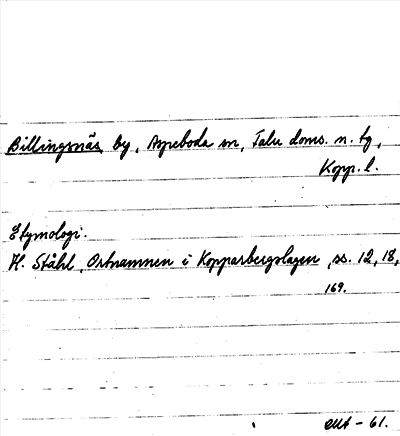 Billingsnäs by, Aspeboda sn, Falu doms. n. tg,
Kopp. l.
Etymologi.
H. Ståhl, Ortnamnen i Kopparbergslagen, ss. 12, 18,
169.
EUt - 61.